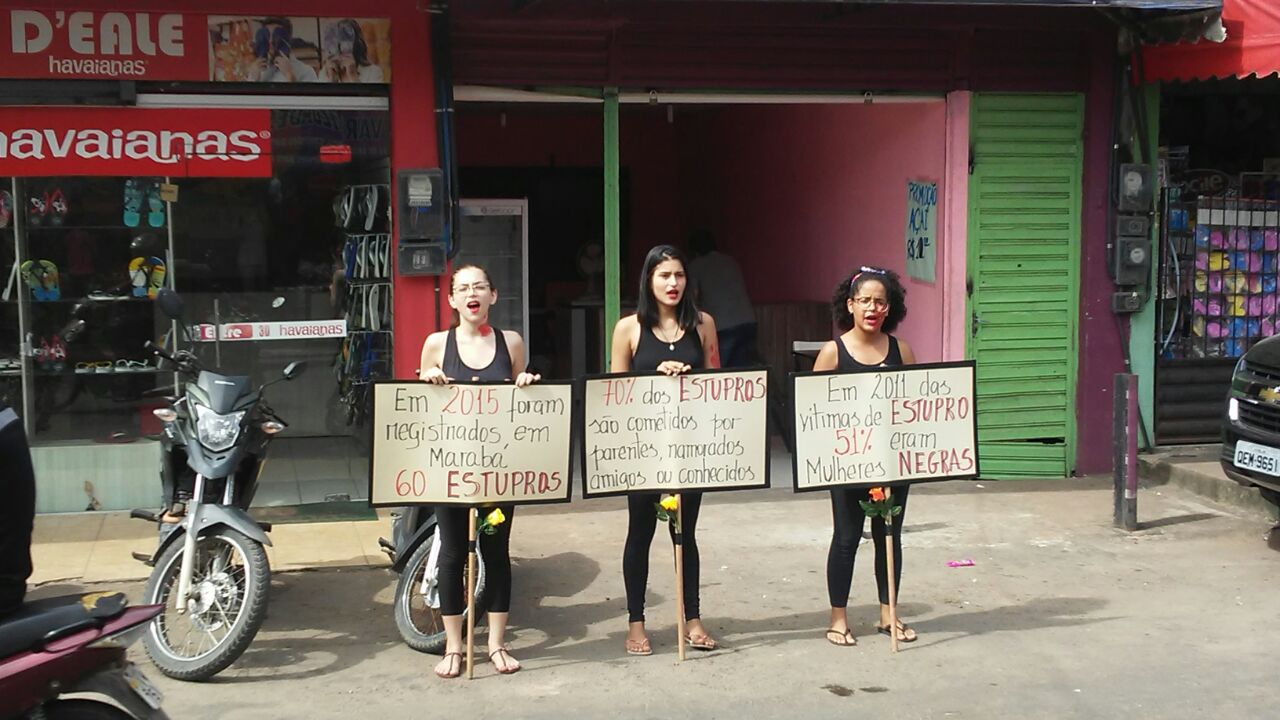 D'EALE
havaianas
havaianas®
havaianas
PROMOÇÃO
AÇAÍ
R$
Em 2015 foram
registrados, em
Marabá
60 ESTUPROS
70% dos ESTUPROS
são cometidos por
parentes, namorados
amigos ou conhecidos
Em 2011 das
vítimas de ESTUPRO
51% eram
Mulheres NEGRAS